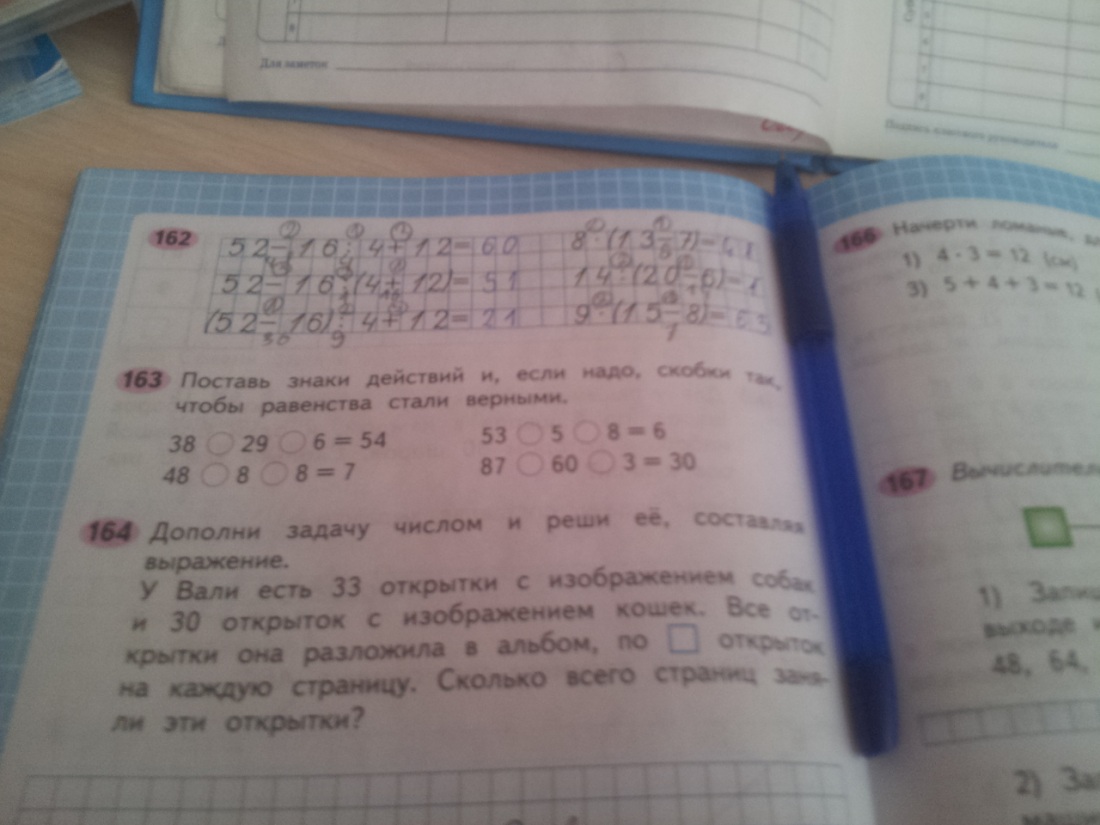 Для заметок
Подпись классного руководителя
162
52-16:4+12=60
52-16:(4+12)=51
(52-16):4+12=21
8·(13-7)=48
14:(20-6)=1
9·(15-8)=63
163 Поставь знаки действий и, если надо, скобки так,
чтобы равенства стали верными.
38 ○ 29 ○ 6 = 54
53 ○ 5 ○ 8 = 6
48 ○ 8 ○ 8 = 7
87 ○ 60 ○ 3 = 30
164 Дополни задачу числом и реши её, составляя
выражение.
У Вали есть 33 открытки с изображением собак
и 30 открыток с изображением кошек. Все от-
крытки она разложила в альбом, по □ открыток
на каждую страницу. Сколько всего страниц заня-
ли эти открытки?
166 Начерти ломаные,
1) 4 · 3 = 12 (см)
3) 5 + 4 + 3 = 12
167 Вычислитель
1)
выходе
48, 64,
2)